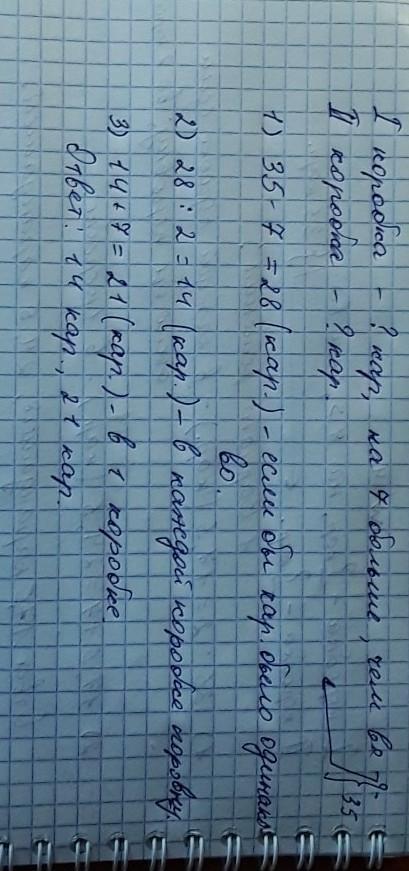 I коробка - ? кар, на 7 больше, чем во 2-
II коробка - ? кар. 35
1) 35 - 7 = 28 (кар.) - если бы кар. было одинако
во.
2) 28 : 2 = 14 (кар.) - в каждой коробке поровну.
3) 14 + 7 = 21 (кар.) - в 1 коробке.
Ответ: 14 кар., 21 кар.